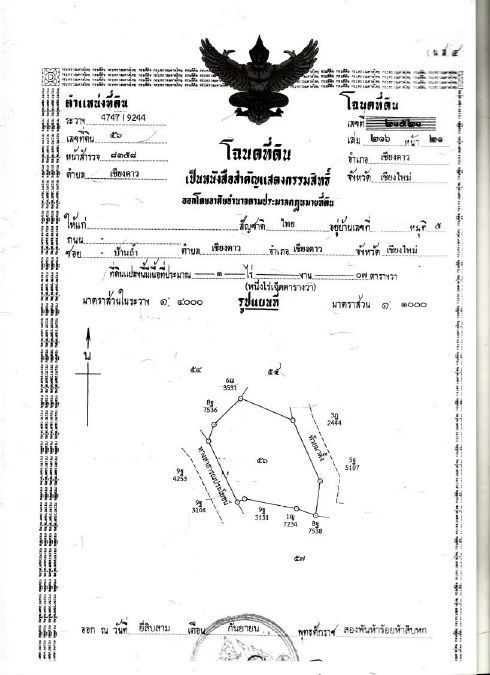 ตำแหน่งที่ดิน
ระวาง 4747 I 9244
เลขที่ดิน ๕๖
หน้าสำรวจ ๘๓๕๘
ตำบล เชียงดาว
โฉนดที่ดิน
เลขที่ ๒๑๕๒๑
เล่ม ๒๑๖ หน้า ๒๑
อำเภอ เชียงดาว
จังหวัด เชียงใหม่
โฉนดที่ดิน
เป็นหนังสือสำคัญแสดงกรรมสิทธิ์
ออกโดยอาศัยอำนาจตามประมวลกฎหมายที่ดิน
ให้แก่ สัญชาติ ไทย อยู่บ้านเลขที่ หมู่ที่ ๕
ถนน -
ซอย - บ้านถ้ำ ตำบล เชียงดาว อำเภอ เชียงดาว จังหวัด เชียงใหม่
ที่ดินแปลงนี้มีเนื้อที่ประมาณ ๑ ไร่ - งาน ๐๗ ตารางวา
(หนึ่งไร่เจ็ดตารางวา)
มาตราส่วนในระวาง ๑: ๔๐๐๐ รูปแผนที่ มาตราส่วน ๑: ๑๐๐๐
น
๕๔
๕๕
6ฌ
3531
8ฐ
7536
3ฎ
2444
ห้วยนาเล้า
๕๖
5ฐ
5107
ทางสาธารณประโยชน์
9ฐ
4253
9ฐ
3144
9ฐ
3131
1ญ
7234
8ฐ
7538
๕๗
ออก ณ วันที่ ยี่สิบสาม เดือน กันยายน พุทธศักราช สองพันห้าร้อยห้าสิบหก